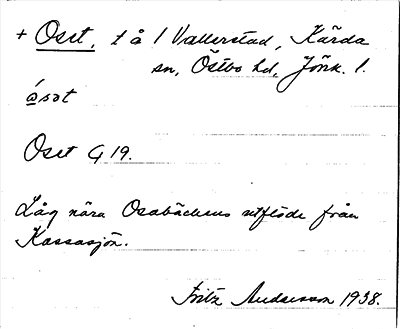 + Oset, t å / Vallerstad, Kärda
sn, Östbo hd, Jönk. l.
ósət
Oset G 19.
Låg nära Osabäckens utflöde från
Kassasjön.
Fritz Andersson 1938.